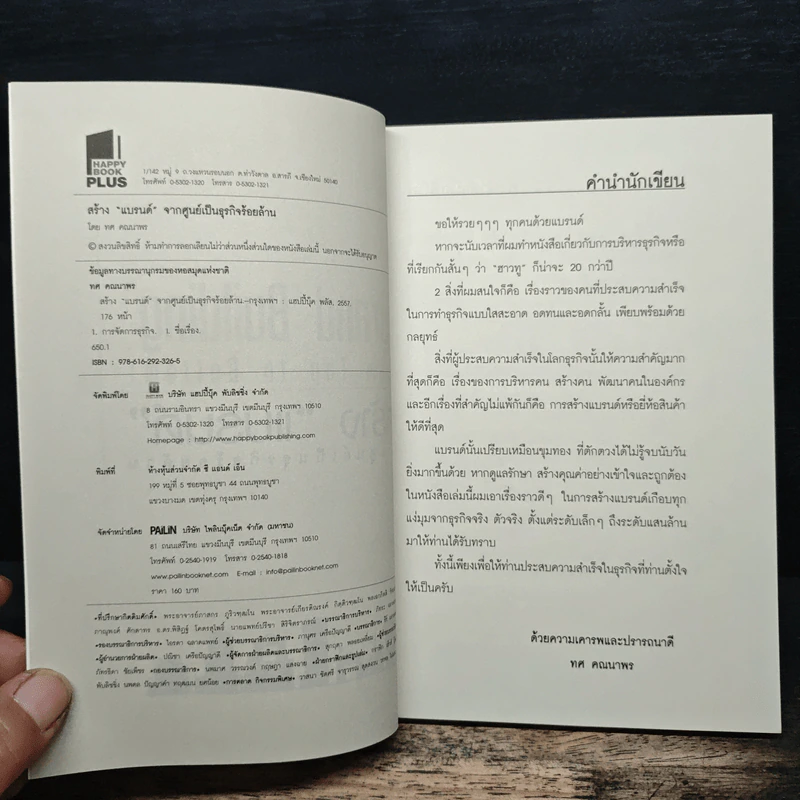 HAPPY
BOOK
PLUS
1/142 หมู่ 9 ถ.วงแหวนรอบนอก ต.ท่าวังตาล อ.สารภี จ.เชียงใหม่ 50140
โทรศัพท์ 0-5302-1320 โทรสาร 0-5302-1321
สร้าง "แบรนด์" จากศูนย์เป็นธุรกิจร้อยล้าน
โดย ทศ คณนาพร
© สงวนลิขสิทธิ์ ห้ามทำการลอกเลียนไม่ว่าส่วนหนึ่งส่วนใดของหนังสือเล่มนี้ นอกจากจะได้รับอนุญาต
ข้อมูลทางบรรณานุกรมของหอสมุดแห่งชาติ
ทศ คณนาพร
สร้าง "แบรนด์" จากศูนย์เป็นธุรกิจร้อยล้าน.--กรุงเทพฯ : แฮปปี้บุ๊ค พลัส, 2557.
176 หน้า
1. การจัดการธุรกิจ. I. ชื่อเรื่อง.
650.1
ISBN : 978-616-292-326-5
จัดพิมพ์โดย บริษัท แฮปปี้บุ๊ค พับลิชชิ่ง จำกัด
8 ถนนรามอินทรา แขวงมีนบุรี เขตมีนบุรี กรุงเทพฯ 10510
โทรศัพท์ 0-5302-1320 โทรสาร 0-5302-1321
Homepage : http://www.happybookpublishing.com
พิมพ์ที่ ห้างหุ้นส่วนจำกัด ซี แอนด์ เอ็น
199 หมู่ที่ 5 ซอยพุทธบูชา 44 ถนนพุทธบูชา
แขวงบางมด เขตทุ่งครุ กรุงเทพฯ 10140
จัดจำหน่ายโดย PAiLiN บริษัท ไพลินบุ๊คเน็ต จำกัด (มหาชน)
81 ถนนเสรีไทย แขวงมีนบุรี เขตมีนบุรี กรุงเทพฯ 10510
โทรศัพท์ 0-2540-1919 โทรสาร 0-2540-1818
www.pailinbooknet.com E-mail : info@pailinbooknet.com
ราคา 160 บาท
คำนำนักเขียน
ขอให้รวยๆๆๆ ทุกคนด้วยแบรนด์
หากจะนับเวลาที่ผมทำหนังสือเกี่ยวกับการบริหารธุรกิจหรือ
ที่เรียกกันสั้นๆ ว่า "ฮาวทู" ก็น่าจะ 20 กว่าปี
2 สิ่งที่ผมสนใจก็คือ เรื่องราวของคนที่ประสบความสำเร็จ
ในการทำธุรกิจแบบใสสะอาด อดทนและอดกลั้น เพียบพร้อมด้วย
กลยุทธ์
สิ่งที่ผู้ประสบความสำเร็จในโลกธุรกิจนั้นให้ความสำคัญมาก
ที่สุดก็คือ เรื่องของการบริหารคน สร้างคน พัฒนาคนในองค์กร
และอีกเรื่องที่สำคัญไม่แพ้กันก็คือ การสร้างแบรนด์หรือยี่ห้อสินค้า
ให้ดีที่สุด
แบรนด์นั้นเปรียบเหมือนขุมทอง ที่ตักตวงได้ไม่รู้จบนับวัน
ยิ่งมากขึ้นด้วย หากดูแลรักษา สร้างคุณค่าอย่างเข้าใจและถูกต้อง
ในหนังสือเล่มนี้ผมเอาเรื่องราวดีๆ ในการสร้างแบรนด์เกือบทุก
แง่มุมจากธุรกิจจริง ตัวจริง ตั้งแต่ระดับเล็กๆ ถึงระดับแสนล้าน
มาให้ท่านได้รับทราบ
ทั้งนี้เพียงเพื่อให้ท่านประสบความสำเร็จในธุรกิจที่ท่านตั้งใจ
ให้เป็นครับ
ด้วยความเคารพและปรารถนาดี
ทศ คณนาพร